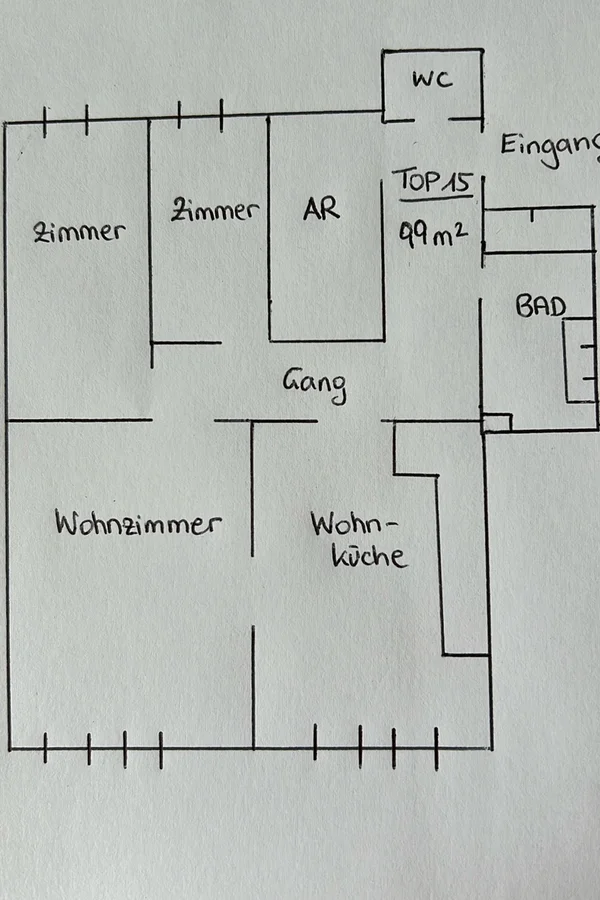 WC
Eingang
TOP 15
99 m²
Zimmer
Zimmer
AR
BAD
Gang
Wohnzimmer
Wohn-
küche